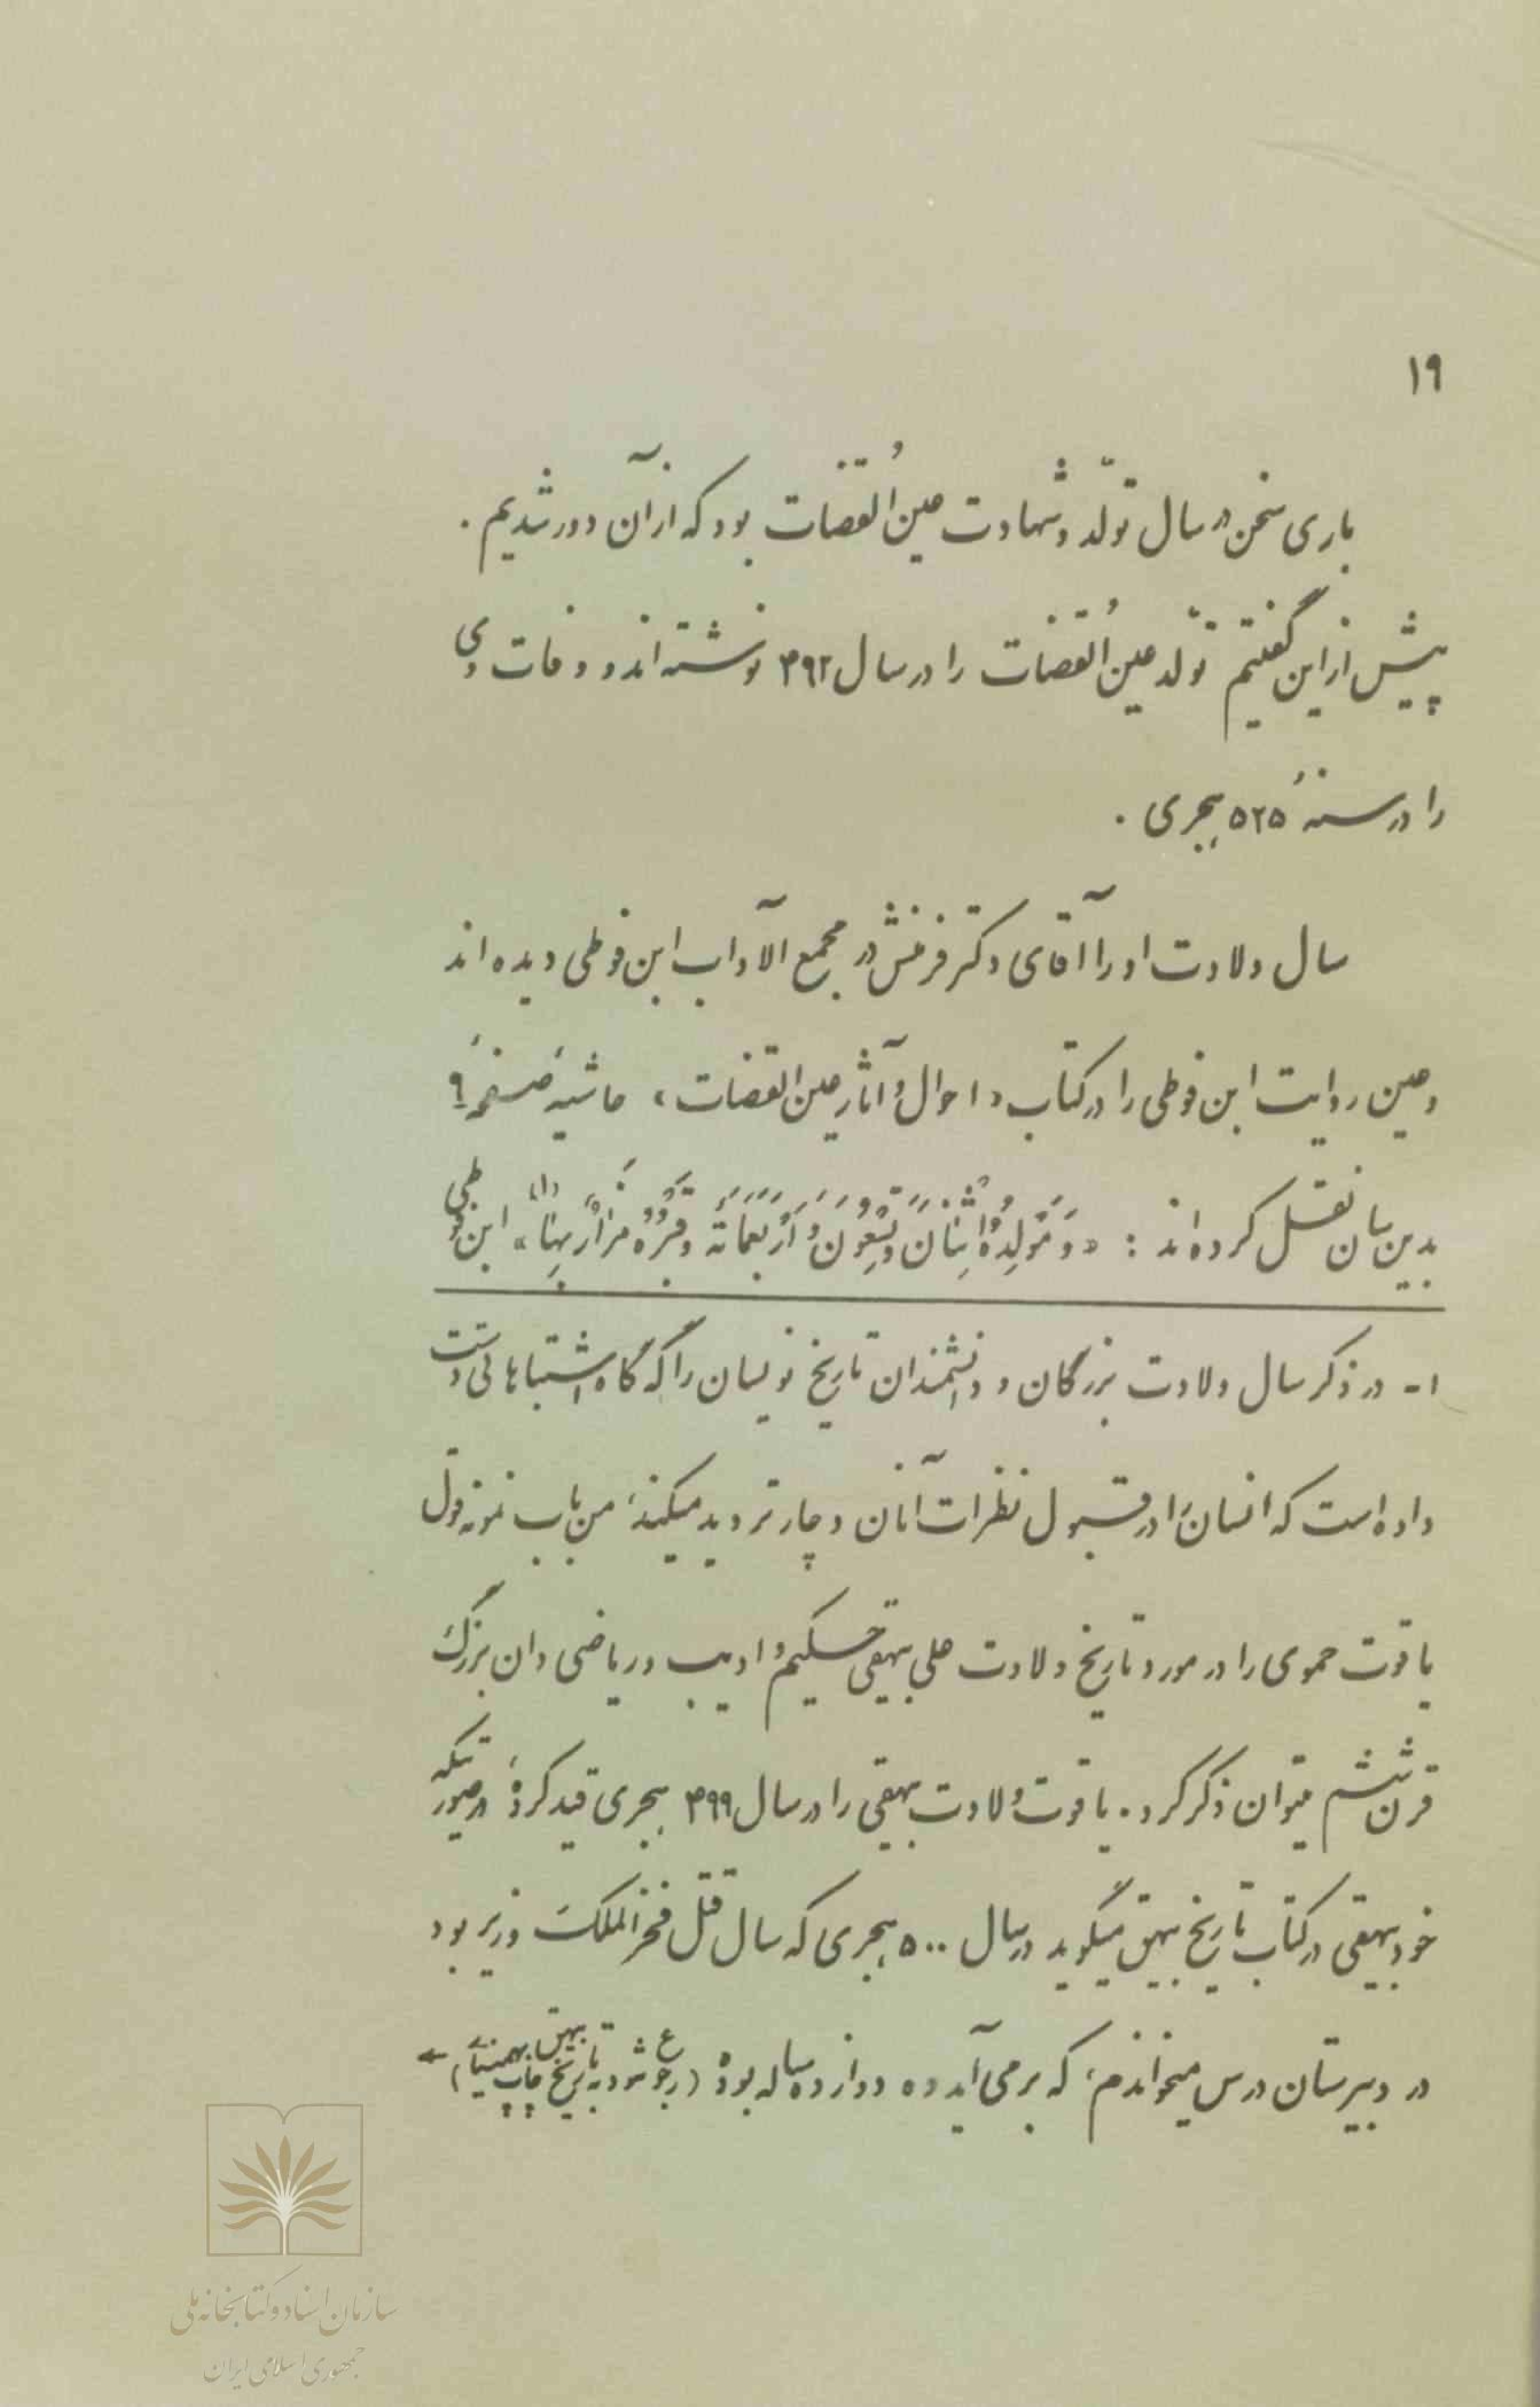 ۱۹
باری سخن در سال تولّد و شهادت عین‌القضات بود که از آن دور شدیم.
پیش از این گفتیم تولّد عین‌القضات را در سال ۴۹۲ نوشته‌اند و وفات وی
را در سنهٔ ۵۲۵ هجری.
سال ولادت او را آقای دکتر فرمنش در مجمع الآداب ابن فوطی دیده‌اند
و عین روایت ابن فوطی را در کتاب «احوال و آثار عین القضات» حاشیهٔ صفحهٔ ۹
بدین سان نقل کرده‌اند: «وَ مَولِدُهُ اثنَانَ وَ تِسْعُونَ وَ اَرْبَعَمَائَة وَ قَبْرُهُ مَزارٌ بِهَا» (۱) ابن فوطی
۱- در ذکر سال ولادت بزرگان و دانشمندان تاریخ نویسان را گه گاه اشتباهاتی دست
داده است که انسان را در قبول نظرات آنان دچار تردید میکند، من باب نمونه قول
یاقوت حموی را در مورد تاریخ ولادت علی بیهقی حکیم و ادیب و ریاضی دان بزرگ
قرن ششم میتوان ذکر کرد. یاقوت ولادت بیهقی را در سال ۴۹۹ هجری قید کرده، در صورتیکه
خود بیهقی در کتاب تاریخ بیهق میگوید در سال ۵۰۰ هجری که سال قتل فخر الملک وزیر بود
در دبیرستان درس میخواندم، که برمی‌آید ده دوازده ساله بوده (رجوع شود به تاریخ بیهق چاپ بهمنیار) ←
سازمان اسناد و کتابخانه ملی
جمهوری اسلامی ایران